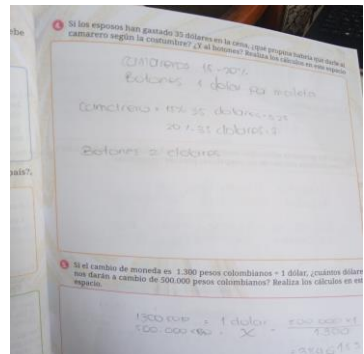 be
4 Si los esposos han gastado 35 dólares en la cena, ¿qué propina habría que darle al
camarero según la costumbre? ¿Y al botones? Realiza los cálculos en este espacio
Camareros 15-20%
Botones 1 dolar por maleta
Camarero = 15% 35 dolares =
20% 35 dolares = 7
Botones 2 dolares
país?,
5 Si el cambio de moneda es 1.300 pesos colombianos = 1 dólar, ¿cuántos dólares
nos darán a cambio de 500.000 pesos colombianos? Realiza los cálculos en est
espacio.
1 dolar 500.000 x 1
500.000 X = 1300